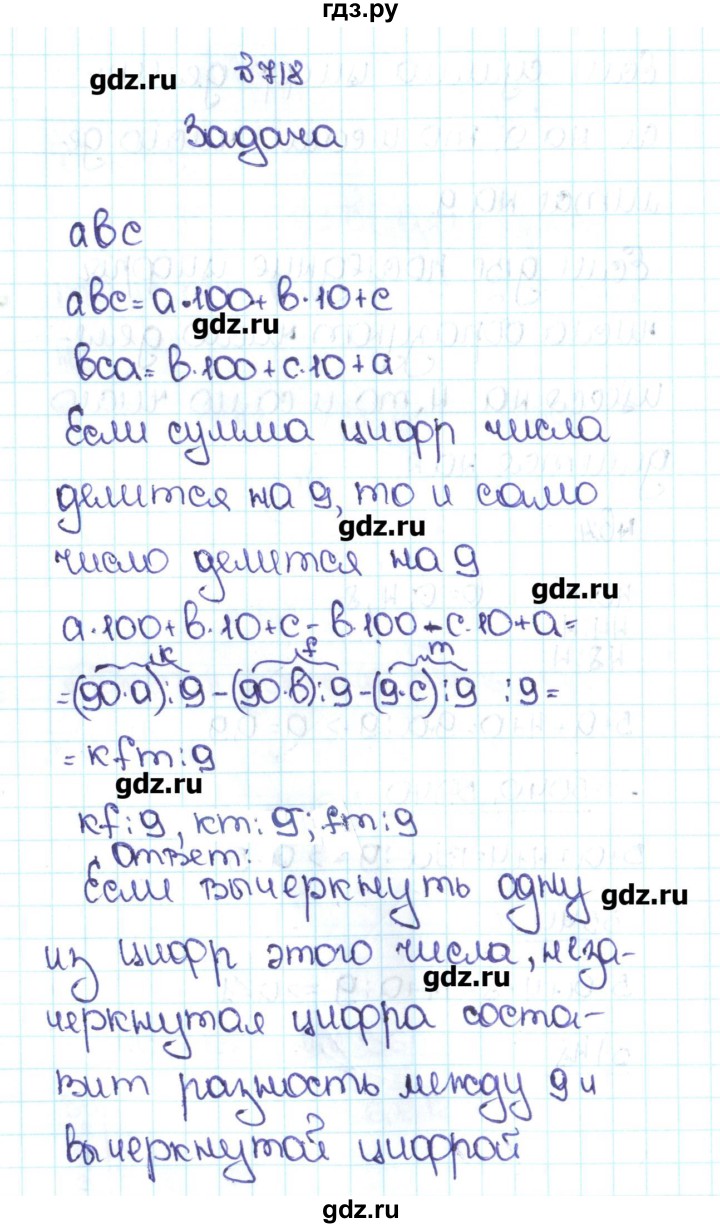 гдз.ру
gdz.ru
№718
Задача
авс
авс = а·100 + в·10 + с
gdz.ru
вса = в·100 + с·10 + а
Если сумма цифр числа
делится на 9, то и само
gdz.ru
число делится на 9
gdz.ru
а·100 + в·10 + с - в·100 - с·10 + а =
k f m
= (90·а) : 9 - (90·в) : 9 - (9·с) : 9 : 9 =
= kfm : 9
gdz.ru
kf : 9, km : 9; fm : 9
Ответ:
Если вычеркнуть одну
gdz.ru
из цифр этого числа, неза-
gdz.ru
черкнутая цифра соста-
вит разность между 9 и
вычеркнутой цифрой
gdz.ru